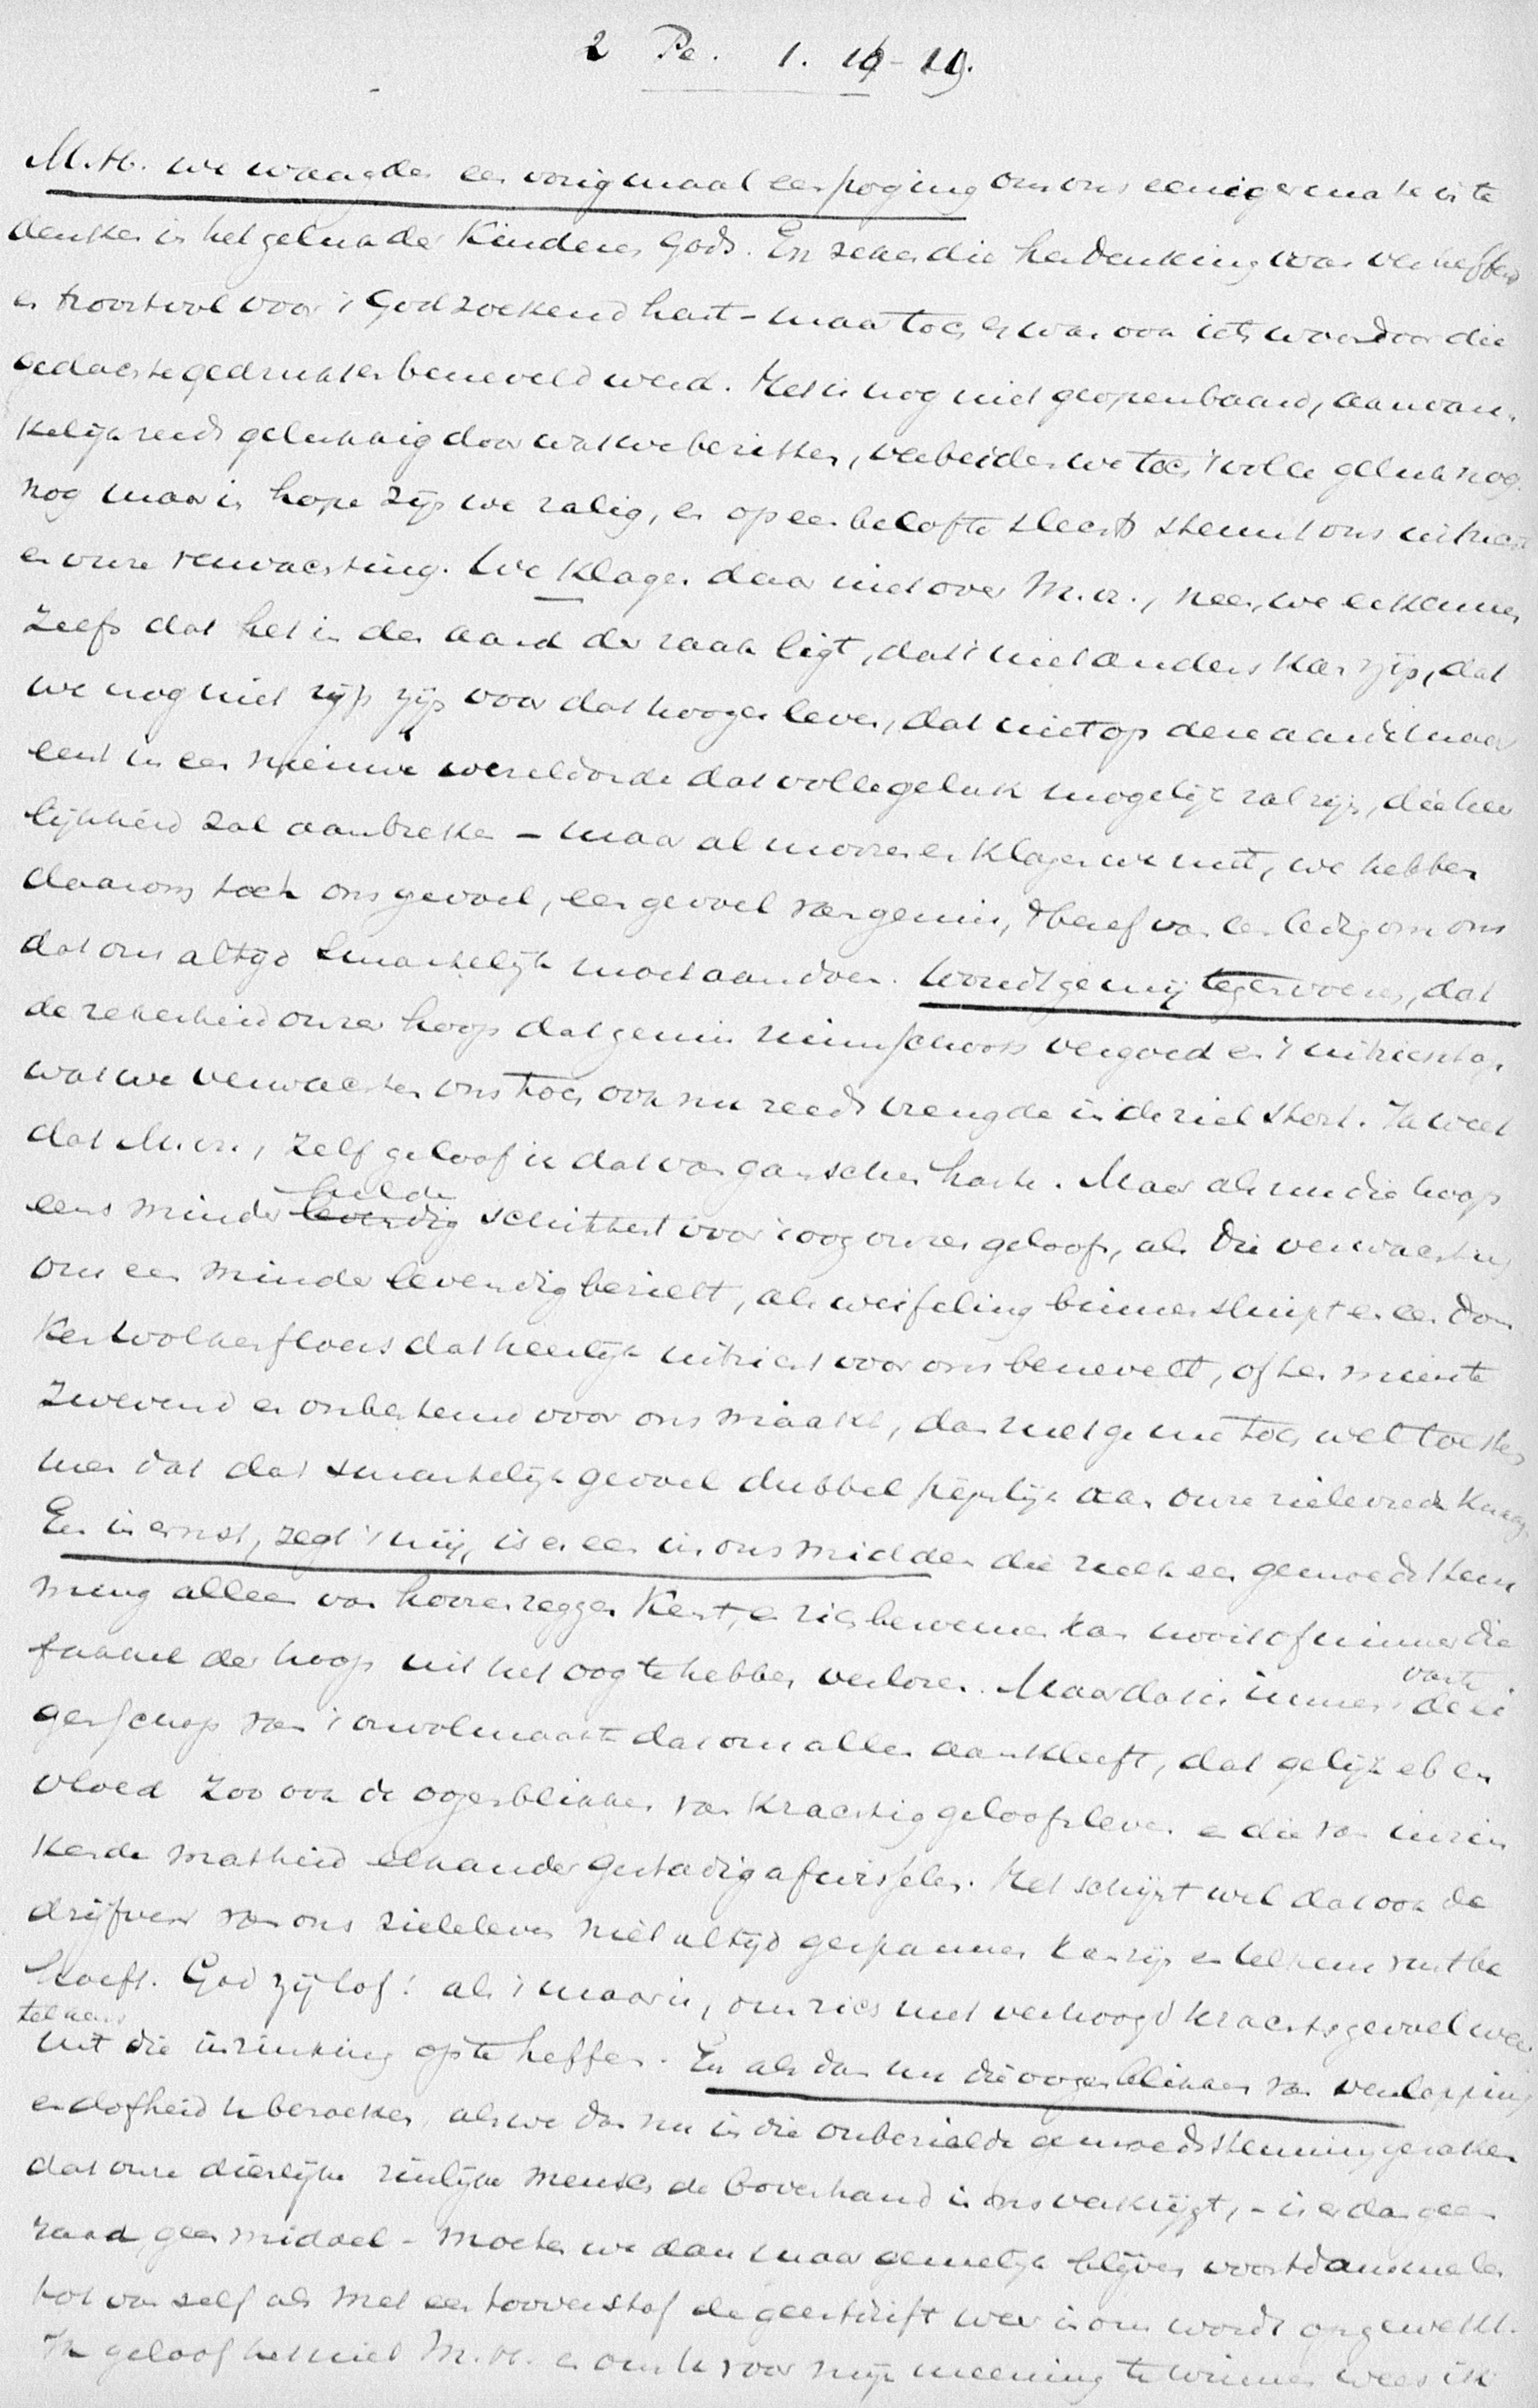 2 Pe. 1. 16-19.
M.H. we waagden een vorig maal een poging om ons eenigermate in te
denken in het geluk der Kinderen Gods. En zeker die herdenking was verheffend
en troostvol voor 't Godzoekend hart - maar toch er was ook iets waardoor die
gedachte gedrukt en beneveld werd. Het is nog niet geopenbaard, aanvan-
kelijk reeds gelukkig door wat we bezitten, verbeiden we toch 't volle geluk nog.
nog maar in hope zijn we zalig, en op een belofte slechts steunt ons uitzicht
en onze verwachting. We klagen daar niet over M.H., neen, we erkennen
zelfs dat het in den aard der zaak ligt, dat 't niet anders kan zijn, dat
we nog niet rijp zijn voor dat hooger leven, dat niet op deze aarde maar
eerst in een nieuwe wereldorde dat volle geluk mogelijk zal zijn, die heer
lijkheid zal aanbreken - maar al morren en klagen we niet, we hebben
daarom toch ons gevoel, een gevoel van gemis, 't besef van een ledig om ons
dat ons altijd smartelijk moet aandoen. Wordt ge mij tegenvoeren, dat
de zekerheid onzer hoop dat gemis ruimschoots vergoed en 't uitzicht op
wat we verwachten ons toch ook nu reeds vreugde in de ziel stort. Ik weet
dat M.H., zelf geloof ik dat van ganscher harte. Maar als nu die hoop
eens minder levendig helder schittert voor 't oog onzes geloofs, als die verwachting
ons een minder levendig bezielt, als weifeling binnensluipt en een don
ker wolkenfloers dat heerlijk uitzicht voor ons benevelt, of ten minste
zwevend en onbestemd voor ons maakt, dan zult ge me toch wel toestem
men dat dat smartelijk gevoel dubbel pijnlijk aan onze zielevrede knaagt
En in ernst, zegt 't mij, is er een in ons midden die zulk een gemoedsstem
ming alleen van hooren zeggen kent, en zich beroemen kan nooit of nimmer die
fakkel der hoop uit het oog te hebben verloren. Maar dat is immers de vaste ei
genschap van 't onvolmaakte dat ons allen aankleeft, dat gelijk eb en
vloed zoo ook de oogenblikken van krachtig geloofsleven en die van inzin
kende matheid elkander gestadig afwisselen. Het schijnt wel dat ook de
drijfveer van ons zieleleven niet altijd gespannen kan zijn en telkens rust be
hoeft. God zij lof! als 't maar is, om zich met verhoogd krachtsgevoel weer
telkens
uit die inzinking op te heffen. En als dan nu die oogenblikken van verslapping
en dofheid u bezoeken, als we dan nu in die onbezielde gemoedsstemming geraken
dat onze dierlijke zinlijke mensch de bovenhand in ons verkrijgt, - is er dan geen
raad, geen middel - moeten we dan maar gemelijk blijven voortdommelen
tot van zelf als met een tooverstaf de geestdrift weer in ons wordt opgewekt.
Ik geloof het niet M.H. en om u voor mijn meening te winnen wees ik